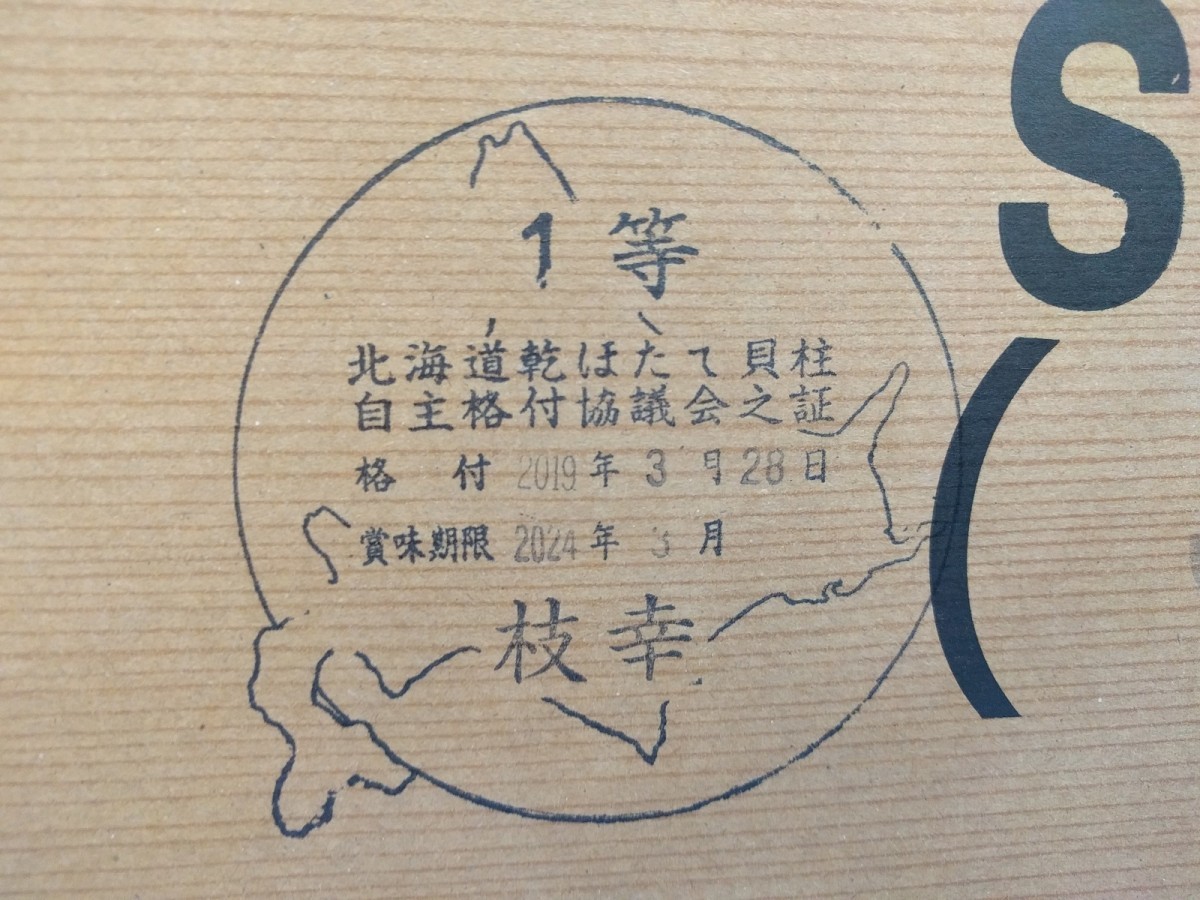 1等
北海道乾ほたて貝柱
自主格付協議会之証
格付 2019年3月28日
賞味期限 2024年3月
枝幸
S
(